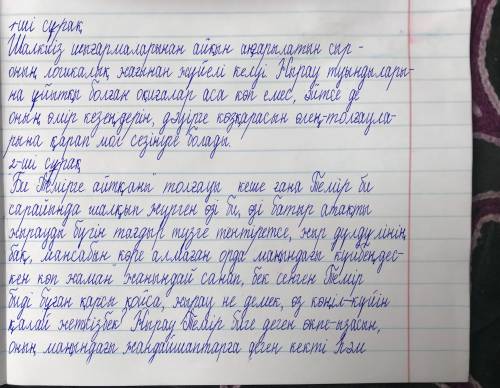 1-ші сұрақ
Шалкиіз шығармаларынан айқын аңғарылатын сыр -
оның логикалық жағынан жүйелі келуі. Жырау туындылары-
на ұйытқы болған оқиғалар аса көп емес, әйтсе де
оның өмір кезеңдерін, дәуірге көзқарасын өлең-толғаула-
рына қарап мол сезінуге болады.
2-ші сұрақ
"Би Темірге айтқаны" толғауы кеше ғана Темір би
сарайында шалқып жүрген әрі би, әрі батыр атақты
жырауды бүгін тағдыр түзге тентіретсе, жыр дүлдүлінің
бақ, мансабын көре алмаған орда маңындағы күйбеңдес-
кен көп жаман" жанындай санап, бек сенген Темір
биді бұған қарсы қойса, жырау не демек, өз көңіл-күйін
қалай жеткізбек. Жырау Темір биге деген өкпе-ызасын,
оның маңындағы жандайшаптарға деген кекті һәм